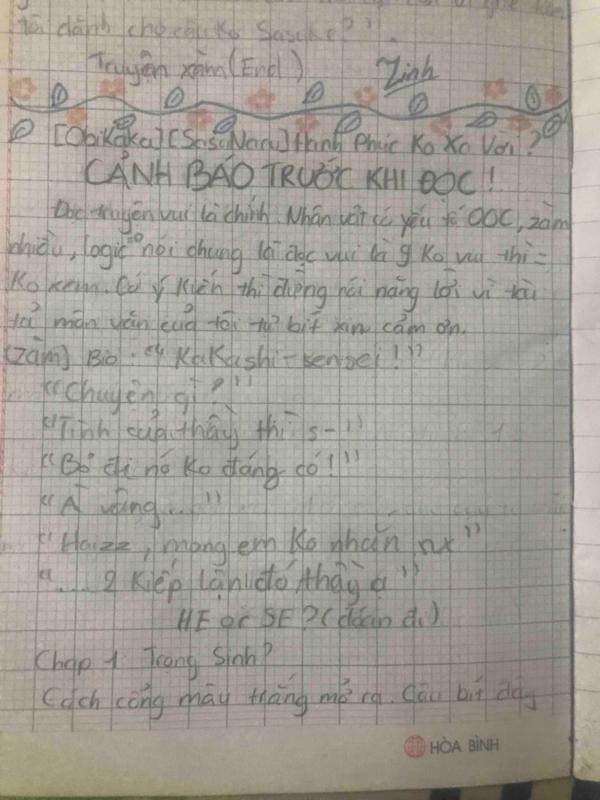 tôi dành cho cậu Ko Sasuke?".
Truyện xàm (End) Linh
[ObiKaka] [SasuNaru] Hạnh Phúc Ko Xa Vời?
CẢNH BÁO TRƯỚC KHI ĐỌC!
Đọc truyện vui là chính. Nhân vật có yếu tố OOC, xàm
nhiều, logic=0 nói chung là đọc vui là 9 Ko vui thì =
Ko xem. Có ý kiến thì đừng nói nặng lời vì tài
tả mần văn của tôi tự bít xin cảm ơn.
(zàm) Bio: "KaKashi-sensei!"
"Chuyện gì?"
"Tình của thầy thì s-"
"Bỏ đi nó Ko đáng có!"
"À vâng..."
"Haizz, mong em Ko nhắn nx"
".... 2 Kiếp lận đó thầy ạ"
HE or SE? (đoán đi)
Chap 1: Trọng Sinh?
Cách cổng màu trắng mở ra. Cậu bít đây
HÒA BÌNH